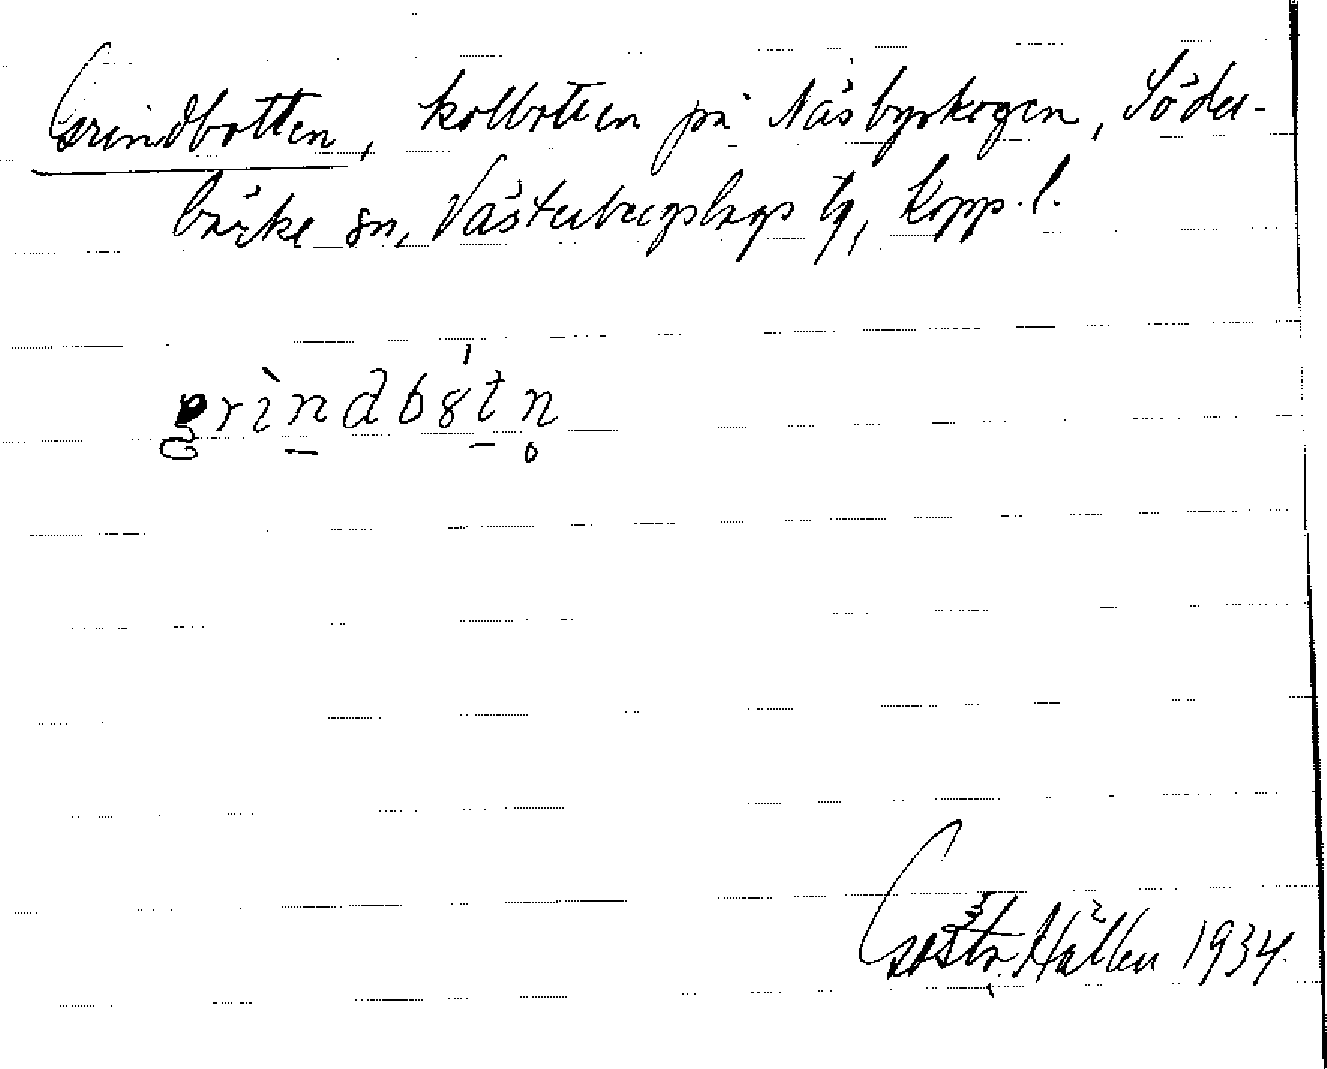 Grindbotten, kolbotten på Näsbyskogen, Söder-
bärke sn, Västerbergslags tg, Kopp. l.
grìndbȣtn̥
Gösta Hallén 1934.